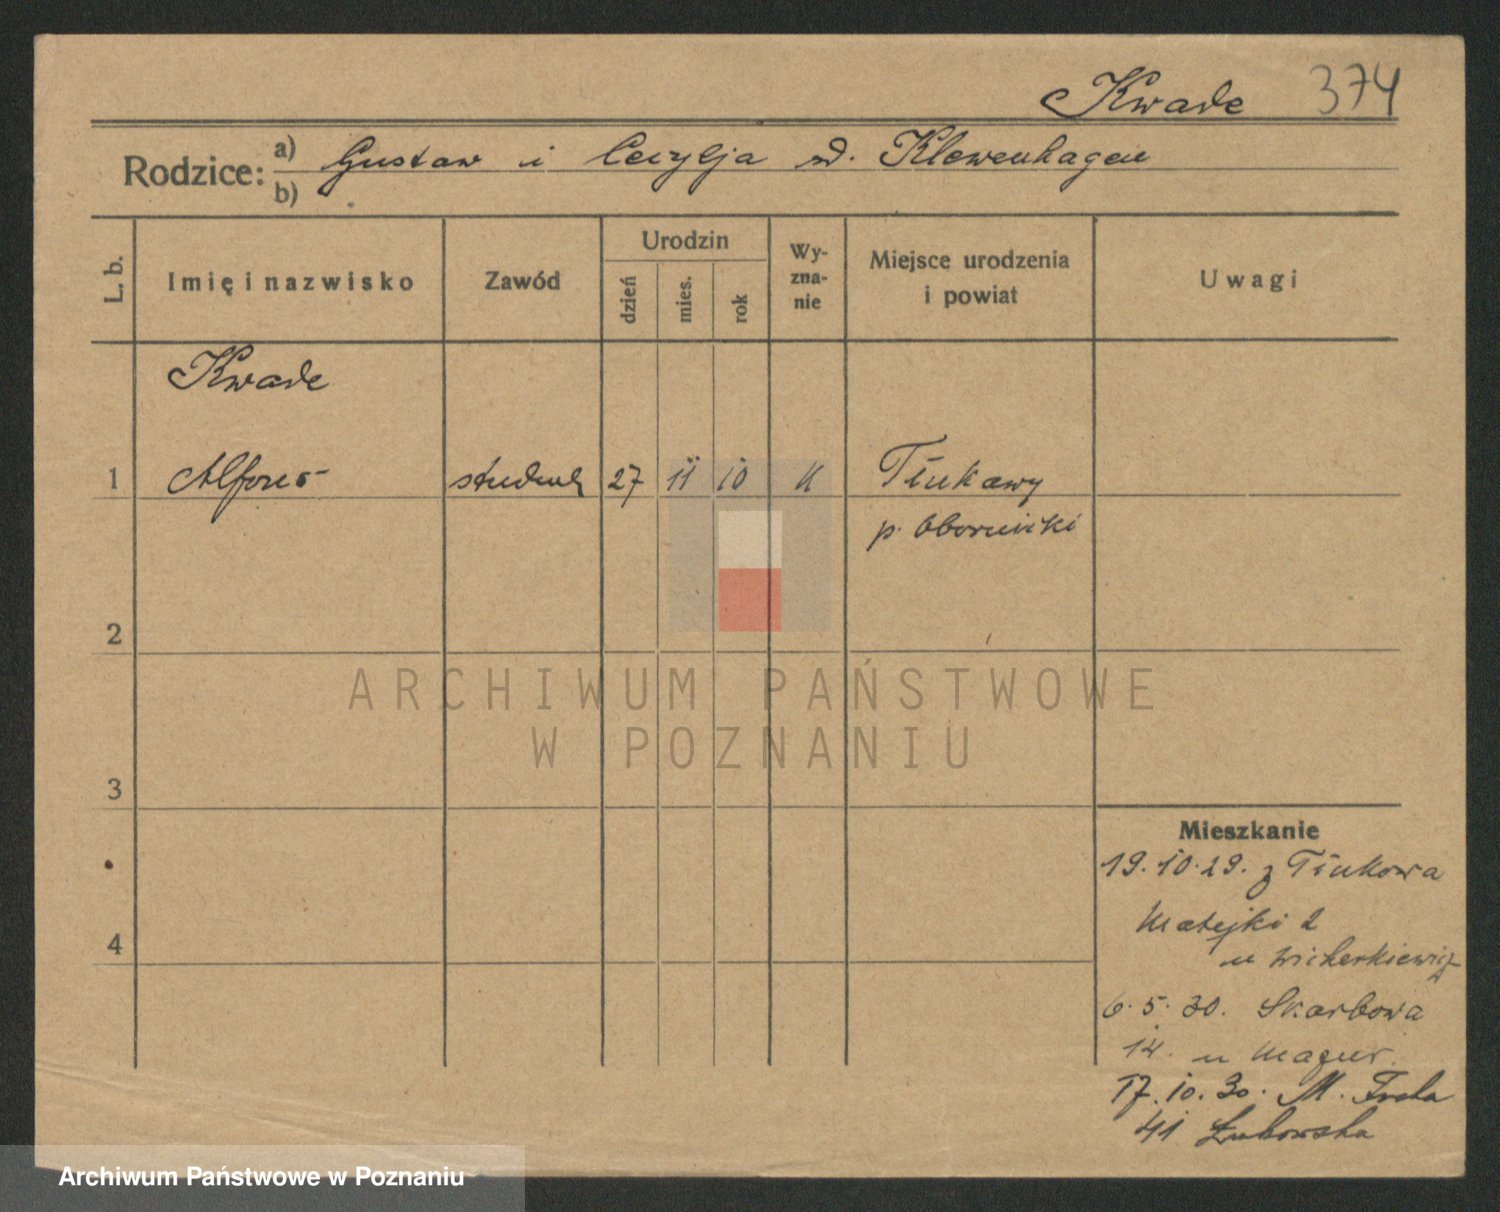 Kwade 374
Rodzice: a) Gustaw i Cecylja z d. Klewenhagen
b)
L. b. Imię i nazwisko Zawód Urodzin dzień mies. rok Wyznanie Miejsce urodzenia i powiat Uwagi
Kwade
1 Alfons student 27 11 10 k Tłukawy
p. Oborniki
2
3
4
Mieszkanie
19.10.29. z Tłukowa
Matejki 2
u Wicherkiewicz
6.5.30. Skarbowa
14. u Mazur.
17.10.30. M. Focha
41 Łukowska
ARCHIWUM PAŃSTWOWE
W POZNANIU
Archiwum Państwowe w Poznaniu